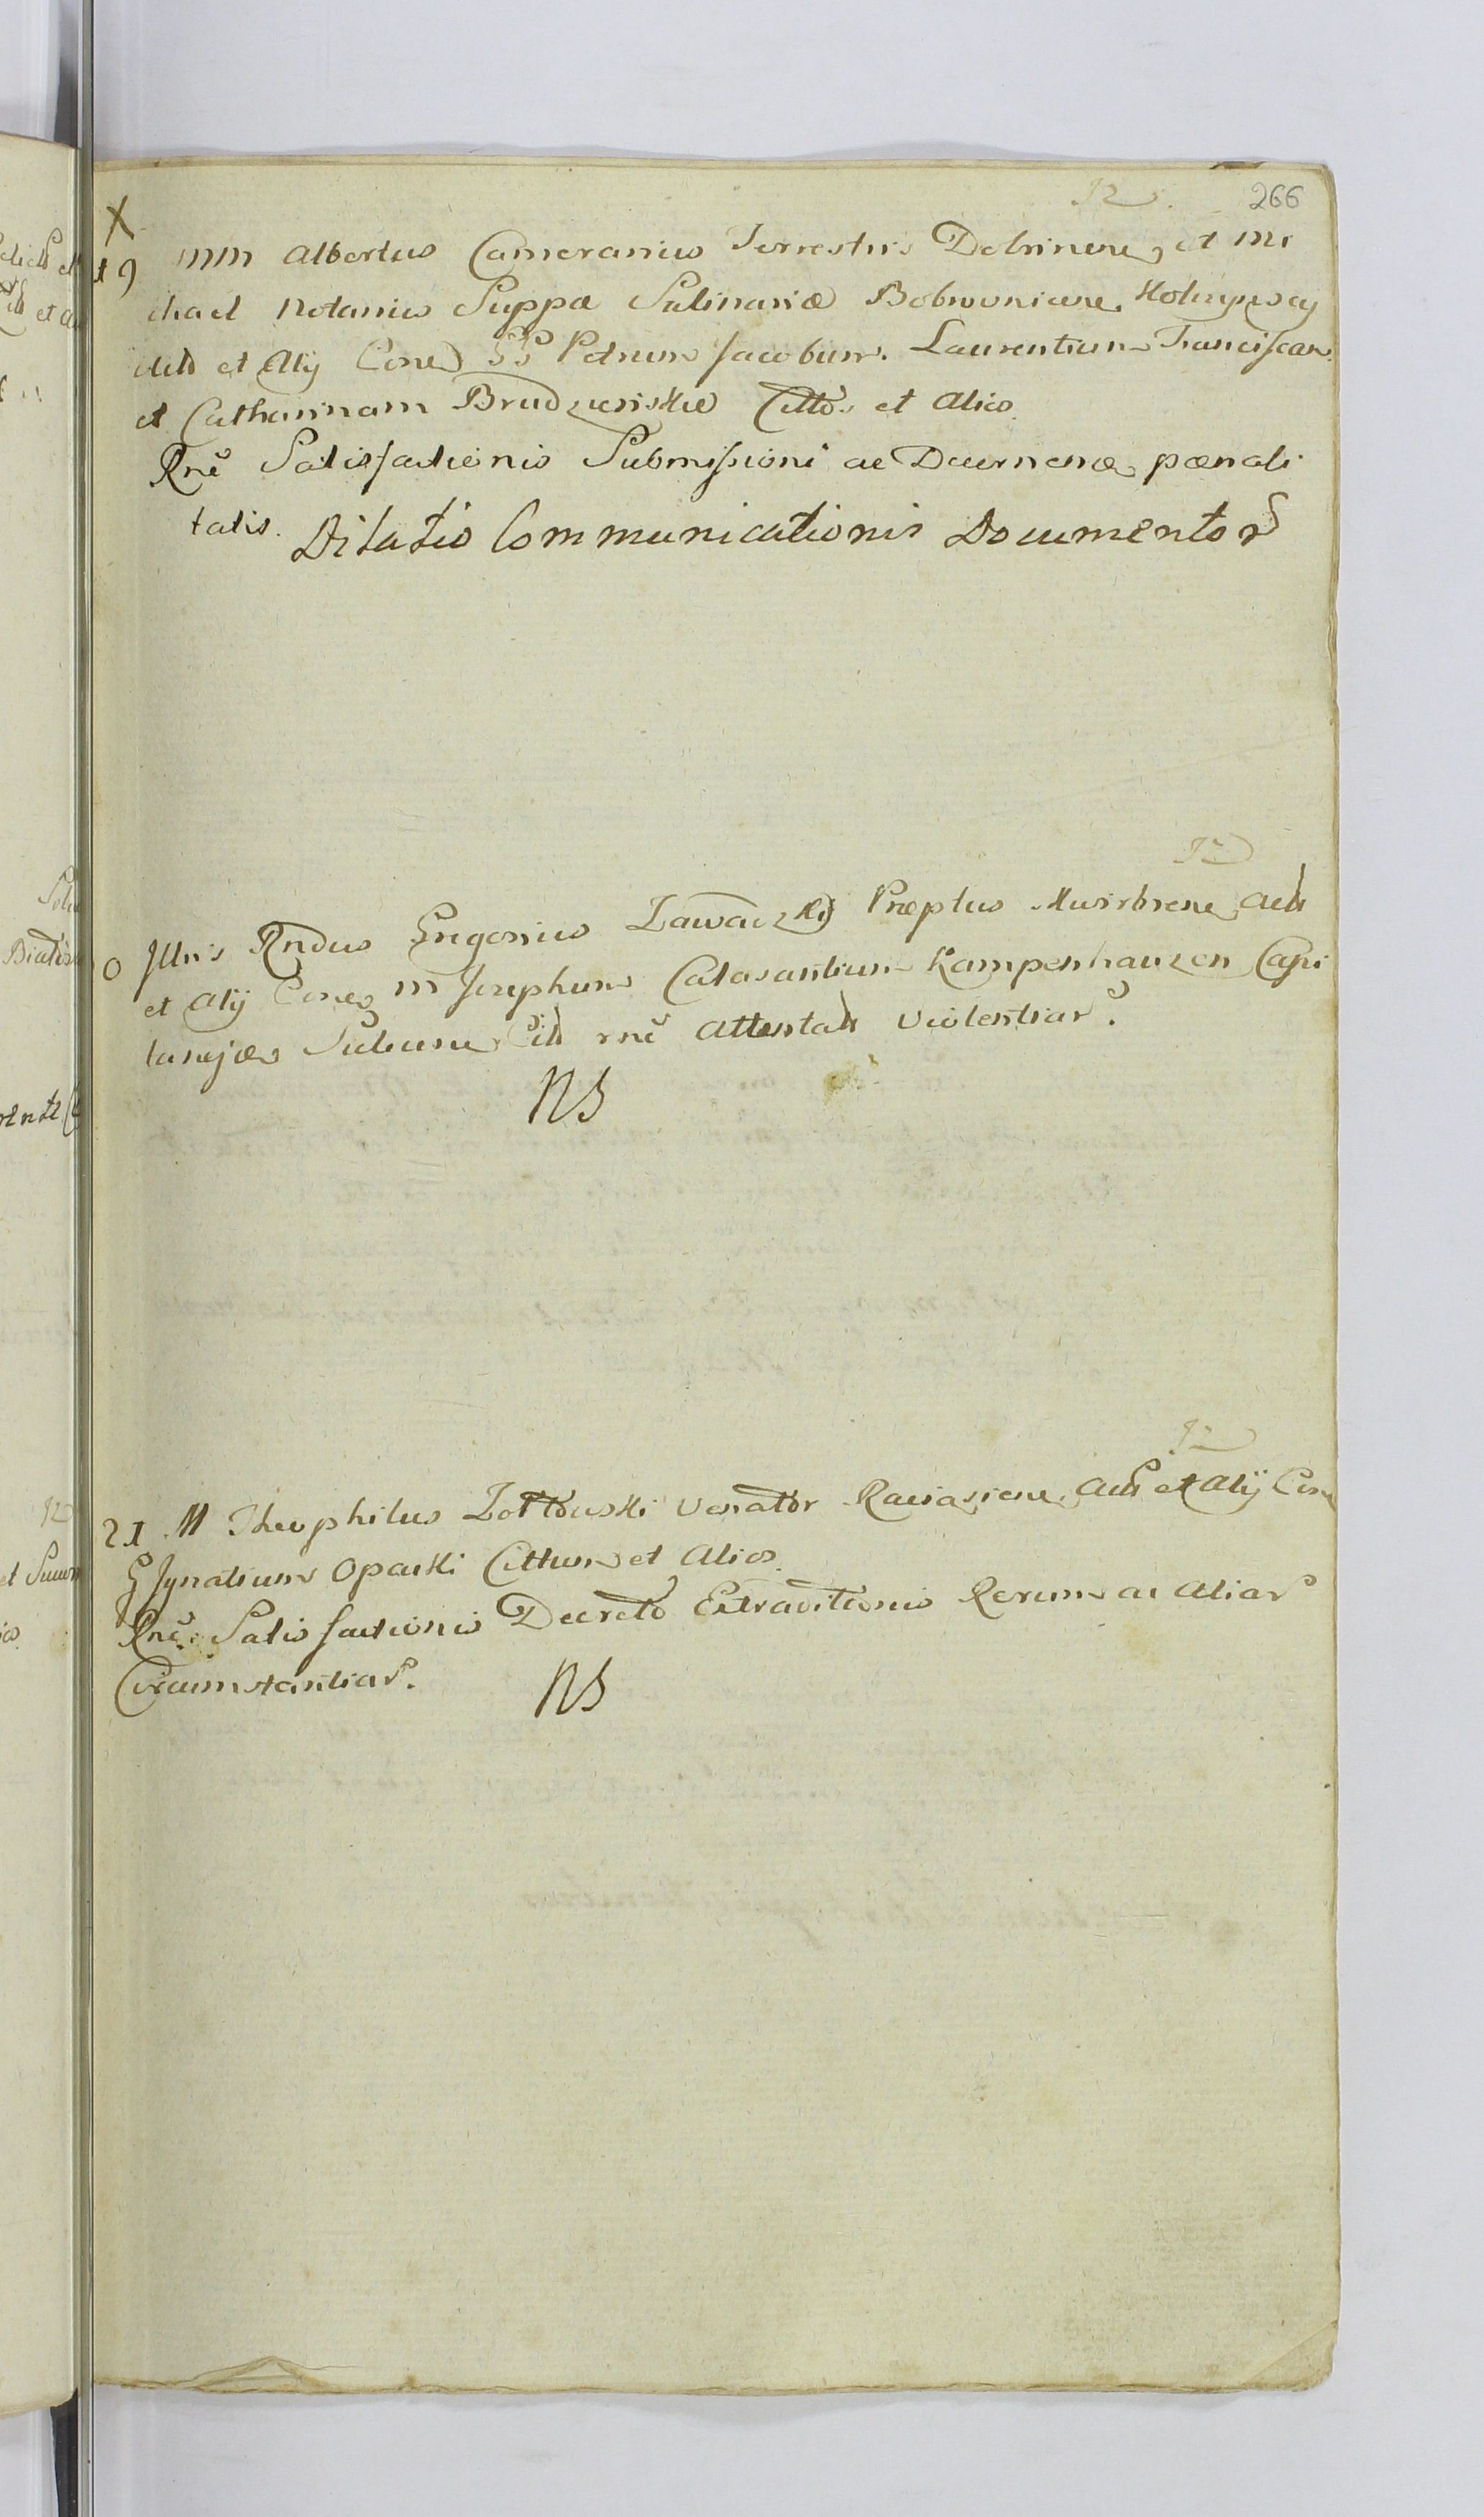 266
X
19 MM Albertus Camerarius Terrestris Dobrinen, et Mi
chael Notarius Suppæ Salinariæ Bobrownicen
et Alij Con GG Petrum Jacobum. Laurentium Franciscum
et Catharinam Brudzenskie Cittos et Alios
Rnē Satisfactionis Submissioni ac Decernenæ pœnali
tatis. Dilatio Communicationis Documentor
0 Illris Rndus Gregorius Zawadzkij Præptus Act
et Alij Cones M Josephum Calasantium Kampenhauzen Capi
rnē Attentat Violentiar.
NS
21 M Theophilus Zottowski Venator Racia et Alij Con
G Ignatium Opacki Cittum et Alios
Rnē Satisfactionis Decreto Extraditionis Rerum ac Aliar
Circumstantiar.
NS